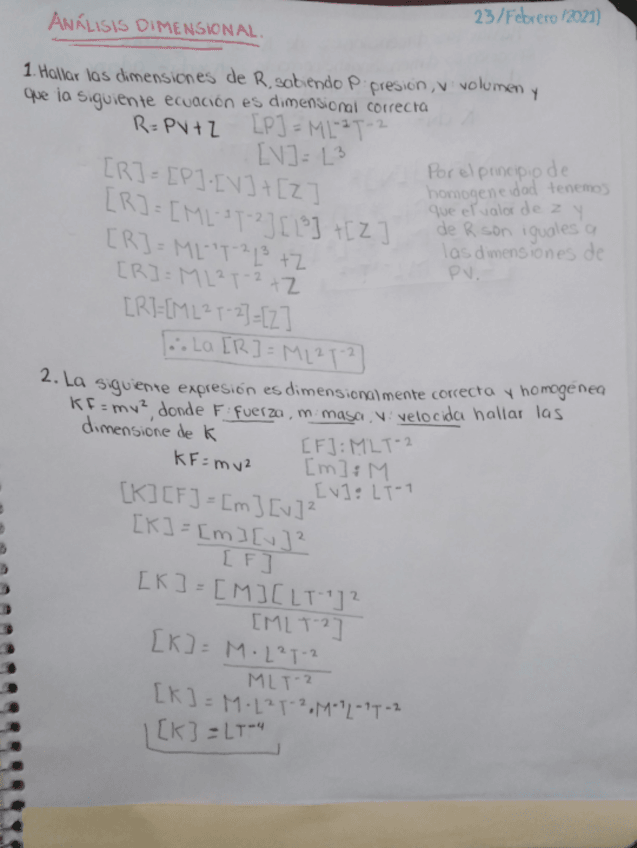 23/Febrero/2021)
ANÁLISIS DIMENSIONAL.
1. Hallar las dimensiones de R, sabiendo P: presión, v: volumen y
que la siguiente ecuación es dimensional correcta
R = PV + Z [P] = ML⁻¹T⁻²
[V] = L³
[R] = [P]·[V] + [Z]
[R] = [ML⁻¹T⁻²][L³] + [Z]
[R] = ML⁻¹T⁻²L³ + Z
[R] = ML²T⁻² + Z
[R] = [ML²T⁻²] = [Z]
∴ La [R] = ML²T⁻²
Por el principio de
homogeneidad tenemos
que el valor de z y
de R son iguales a
las dimensiones de
PV.
2. La siguiente expresión es dimensionalmente correcta y homogénea
KF = mv², donde F: fuerza, m: masa, v: velocida hallar las
dimensione de K
KF = mv²
[F]: MLT⁻²
[m]: M
[v]: LT⁻¹
[K][F] = [m][v]²
[K] = [m][v]²
[F]
[K] = [M][LT⁻¹]²
[MLT⁻²]
[K] = M·L²T⁻²
MLT⁻²
[K] = M·L²T⁻²·M⁻¹L⁻¹T⁻²
[K] = LT⁻⁴